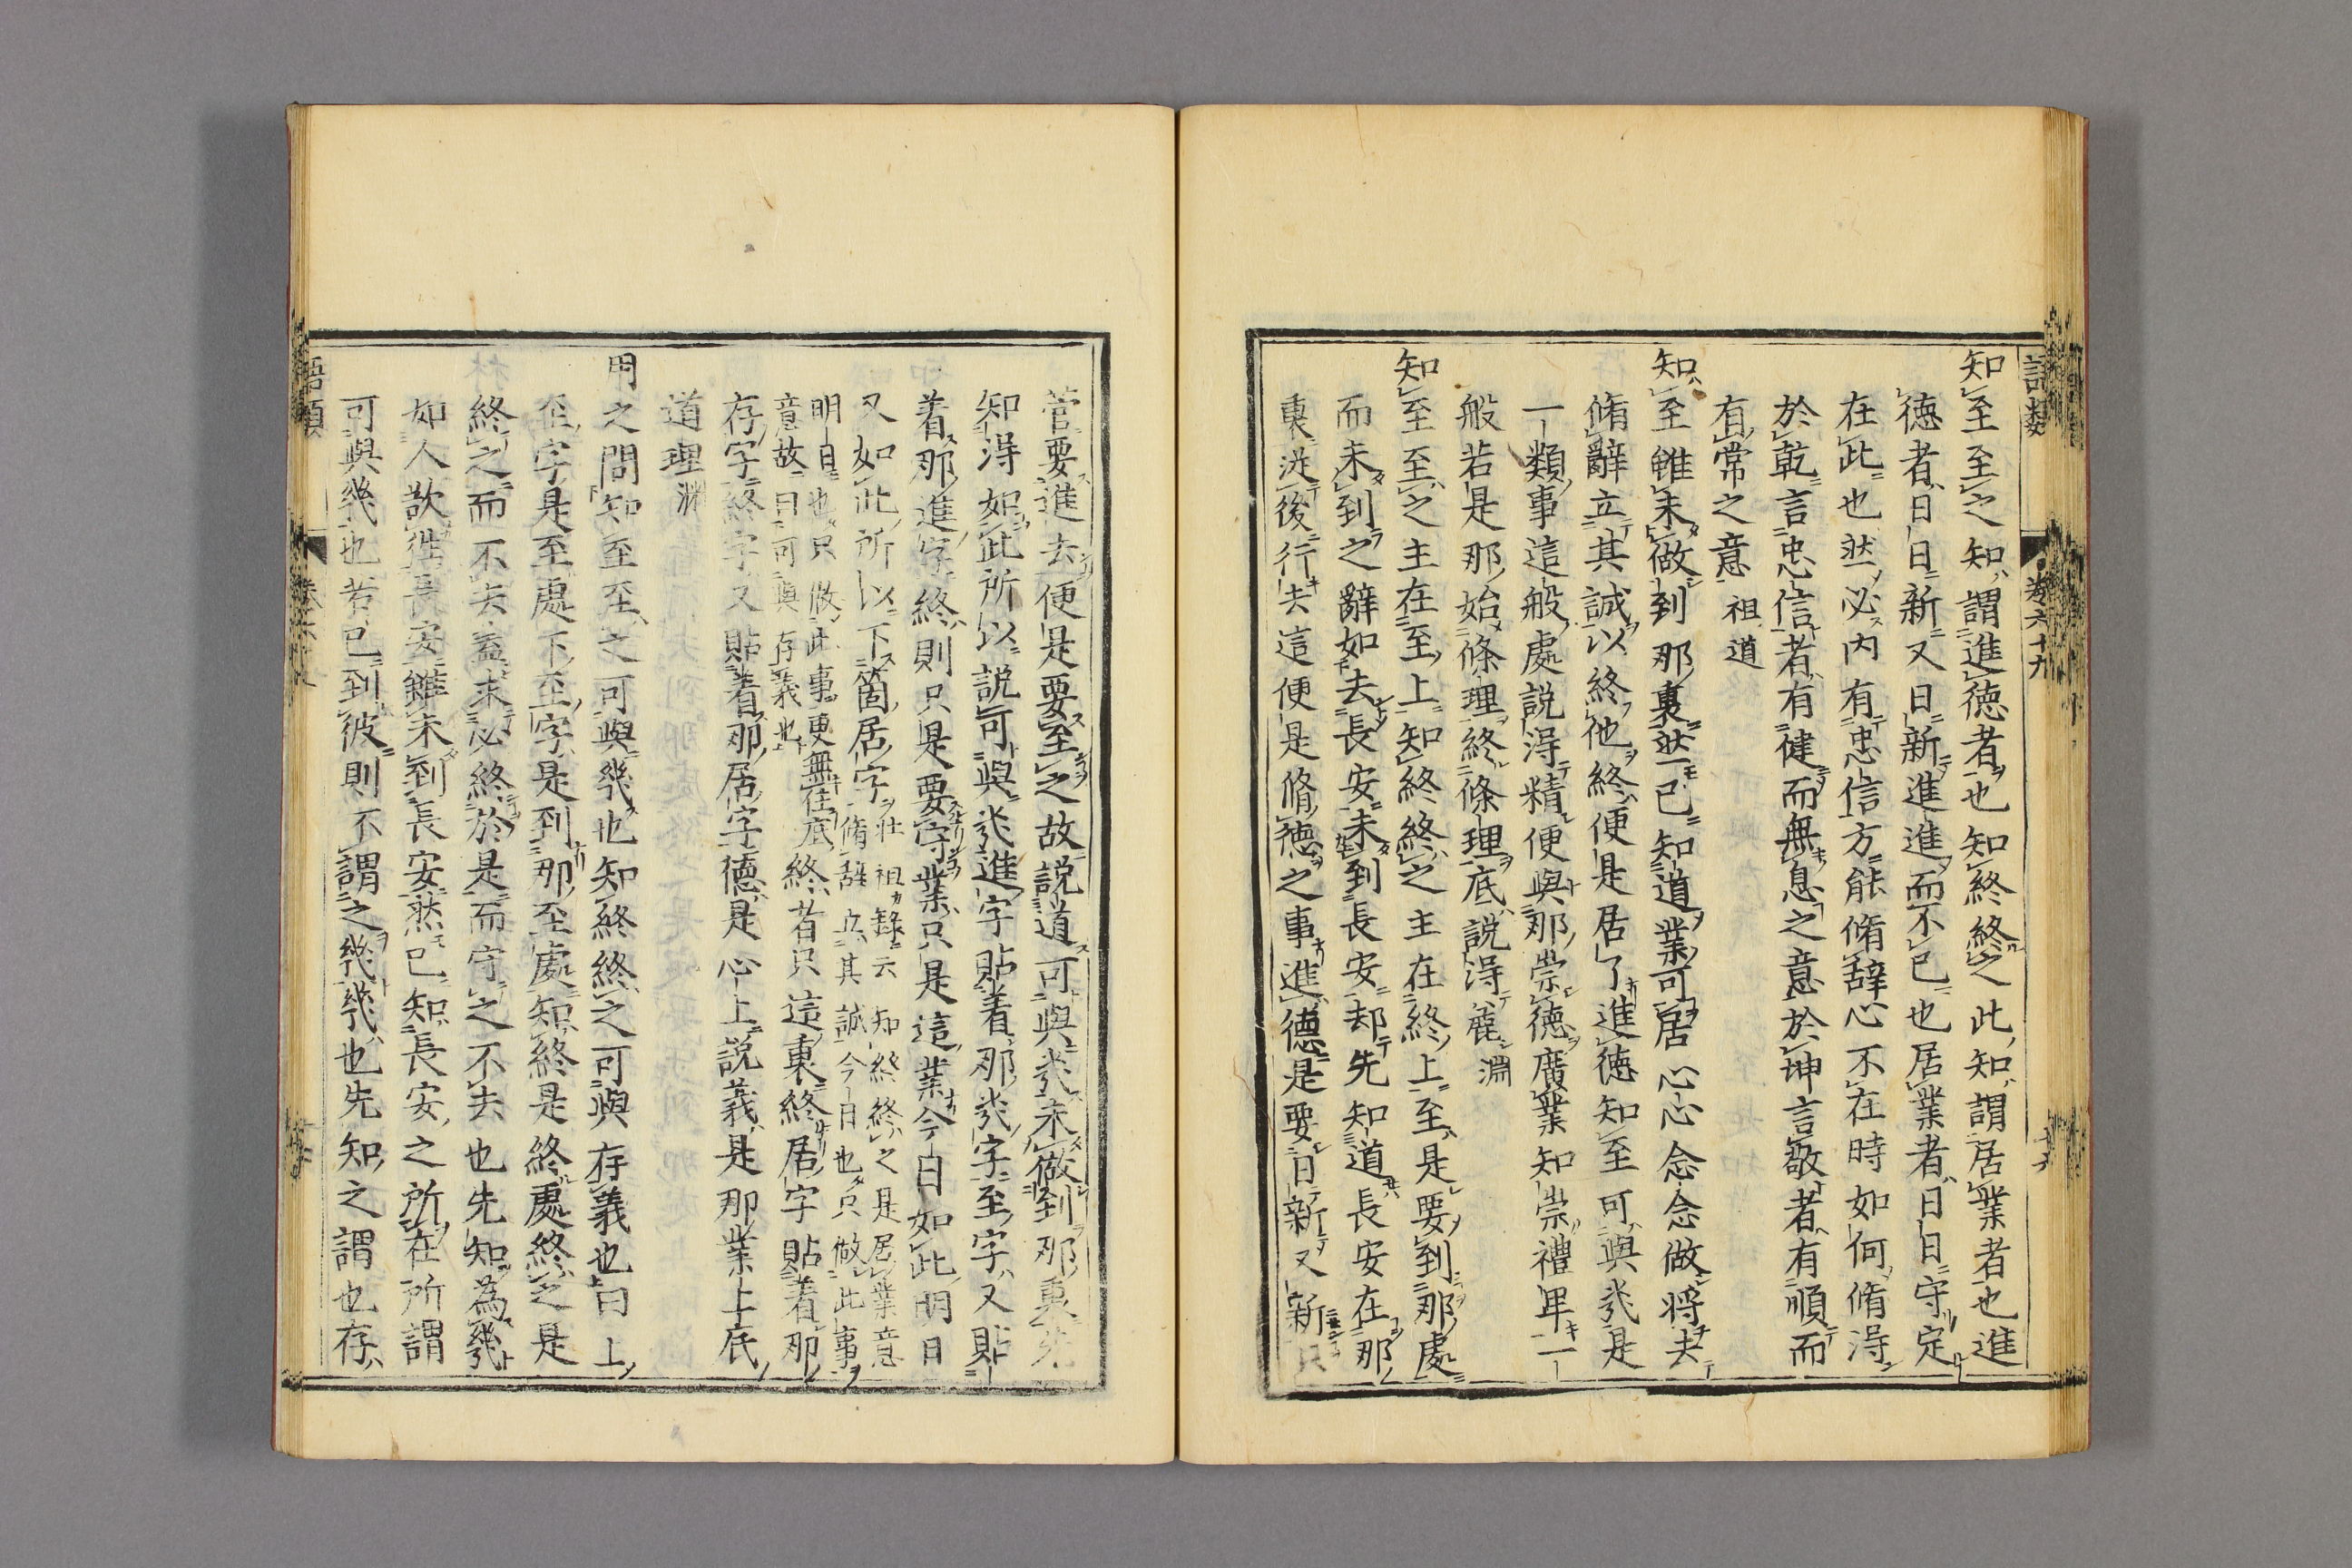 語類 卷六十九
知至至之知謂進徳者也知終終之此知謂居業者也進
徳者日日新又日新進進而不已也居業者日日守定
在此也然必内有忠信方能脩辞心不在時如何脩淂
於乾言忠信者有健而無息之意於坤言敬者有順而
有常之意 祖道
知至雖未做到那裏然已知道業可居心心念念做将去
脩辭立其誠以終他終便是居了進徳知至可與㡬是
一類事這般處說淂精便與那崇徳廣業知崇禮卑一
般若是那始條理終條理底說淂麄 淵
知至至之主在至上知終終之主在終上至是要到那處
而未到之辭如去長安未到長安却先知道長安在那
裏従後行去這便是脩徳之事進徳是要日新又新只
管要進去便是要至之故説道可與㡬未做到那裏先
知淂如此所以説可與㡬進字貼着那㡬字至字又貼
着那進字終則只是要守業只是這業今日如此明日
又如此所以下箇居字 壮祖録云知終終之是居業意
脩辭立其誠今日也只做此事
明日也只做此事更無住底
意故曰可與存義也 終者只這裏終居字貼着那
存字終字又貼着那居字徳是心上説義是那業上底
道理 淵
用之問知至至之可與幾也知終終之可與存義也曰上
至字是至處下至字是到那至處知終是終處終之是
終之而不去盖求必終於是而守之不去也先知為幾
如人欲徃長安雖未到長安然已知長安之所在所謂
可與幾也若已到彼則不謂之幾幾也先知之謂也存
語類